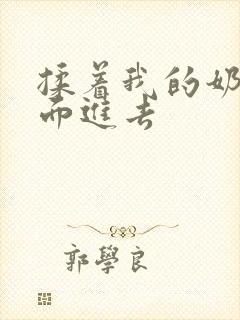 揉着我的奶
而進去
郭學良